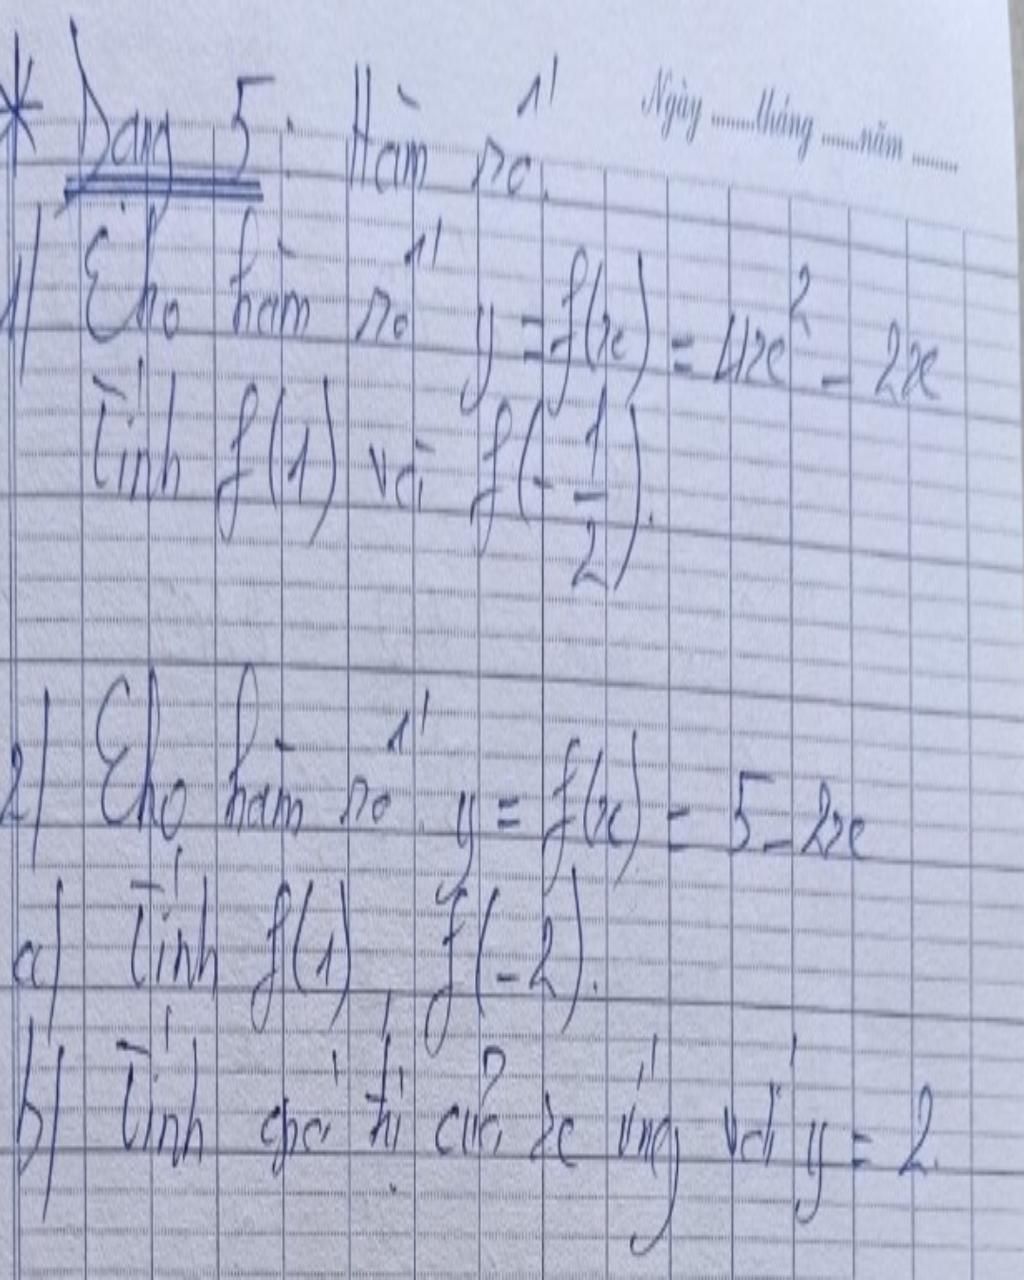 Ngày ......tháng ......năm ......
* Dạng 5: Hàm số.
1/ Cho hàm số y = f(x) = 4x² - 2x
Tính f(1) và f(-1/2).
2/ Cho hàm số y = f(x) = 5 - 2x
a/ Tính f(1), f(-2).
b/ Tính giá trị của x ứng với y = 2.